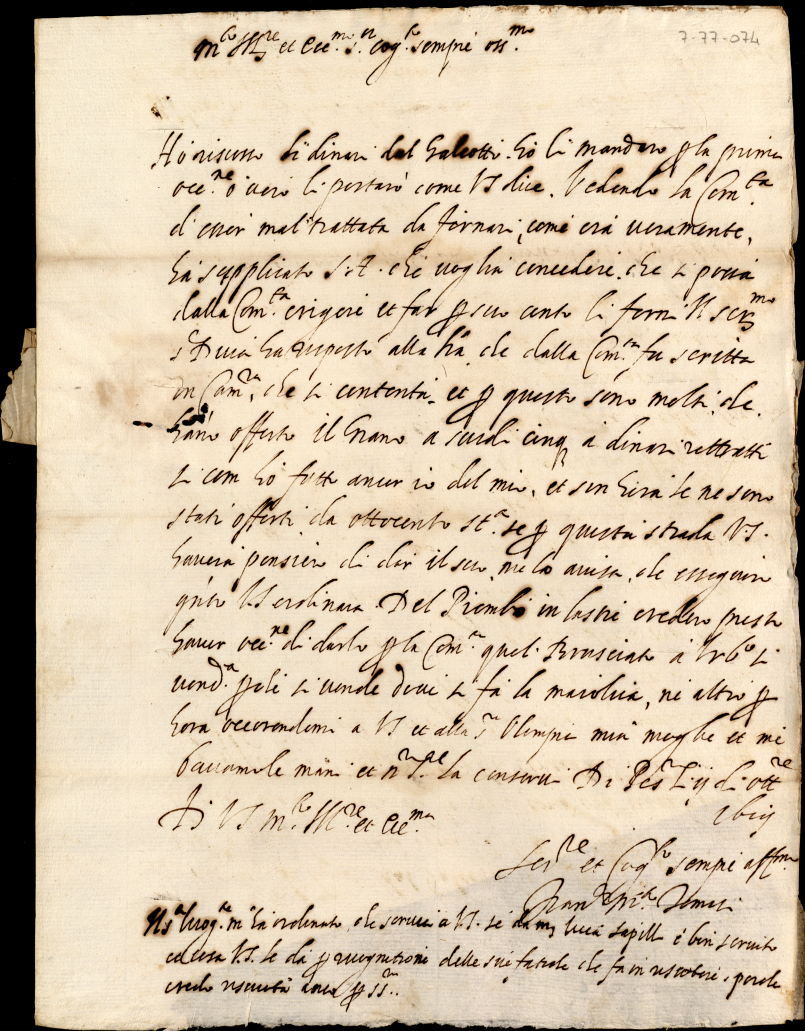 7-77-074
m.to Ill.re et Ecc.mo s.r cog.to sempre oss.mo
Hò riscosso li dinari dal Galeotti. hò li mandarò p la prima
occ.ne ò vero li portarò come VS dice. Vedendo la Com.ta
d'esser mal trattata da fornari, come era veramente,
hà supplicato S.A. che voglia concedere che si possa
dalla Com.ta erigere et far p suo conto li forni. Il ser.mo
s.r Duca ha risposto alla che dalla Com.tà fu scritto
in Cam.ra che si contenta, et p questo sono molti che
hano offerto il Grano a scudi cinq a dinari
si com hò fatto ancor io del mio, et sin hora se ne sono
stati offerti da ottocento st.a se p questa strada VS.
haverà pensiero di dar il suo, me lo avisa, che esseguirò
q.nto VS ordinara. Del Piombo in lastre credero presto
haver occ.ne di darlo p la Com.tà quel Brusciato a Urb.o si
vend.a si vende dove si fà la maiolica, ne altro p
hora occorrendomi a VS et alla s.ra Olimpia mia moglie et me
bacciamo le mani et n.ro S.re la conservi Di Pes.o li ij di ott.re
Di VS m.to Ill.re et Ecc.ma
Ser.re et Cog.to sempre aff.mo
Il s.r m'ha ordinato che scriva a VS. se da m Luca è ben servito
et cosa VS. le dà p recognitione delle sue fatiche che fa in riscotere, perche
credo anco p